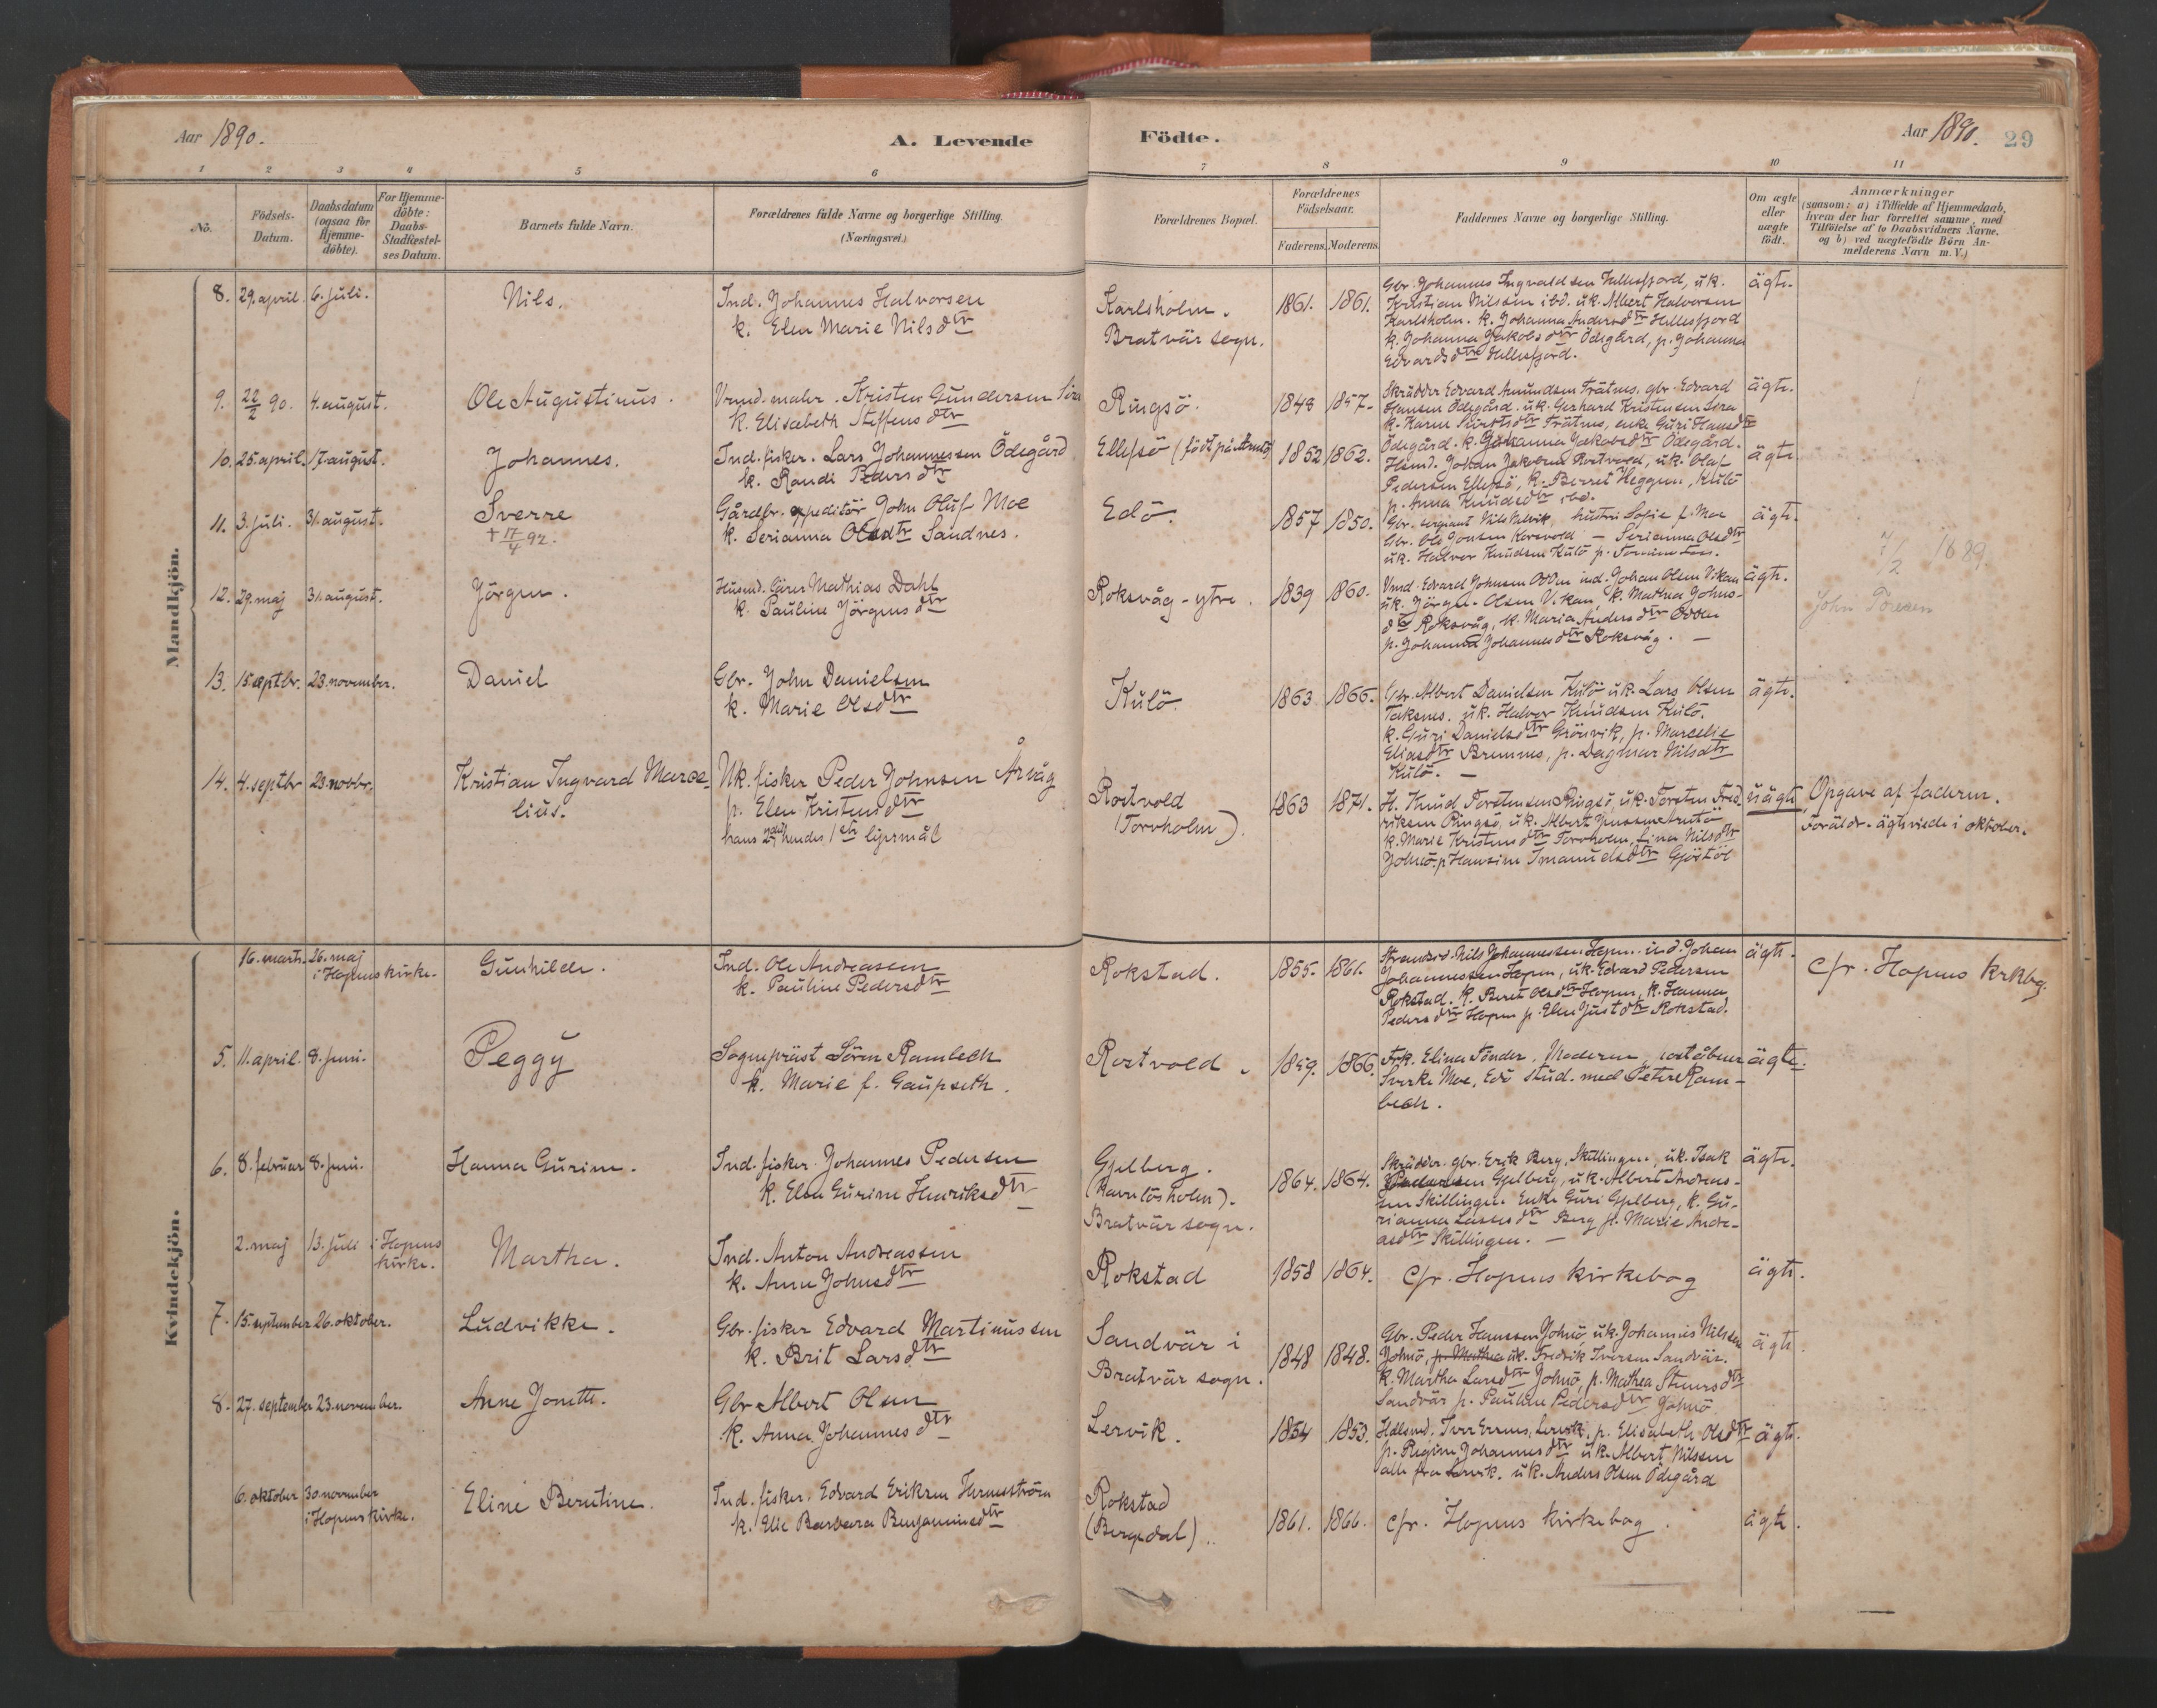 Aar 1890.
A. Levende
Födte.
Aar 1890.
29
1 2 3 4 5 6 7 8 9 10 11
No.
Födsels-Datum.
Daabsdatum (ogsaa for Hjemmedöbte).
For Hjemmedöbte: Daabs-Stadfæstelses Datum.
Barnets fulde Navn.
Forældrenes fulde Navne og borgerlige Stilling.
(Næringsvei.)
Forældrenes Bopæl.
Forældrenes Födselsaar.
Faderens. Moderens.
Faddernes Navne og borgerlige Stilling.
Om ægte eller uægte födt.
Anmærkninger
(saasom: a) i Tilfælde af Hjemmedaab, hvem der har forrettet samme, med Tilföielse af to Daabsvidners Navne, og b) ved uægtefödte Börn Anmelderens Navn m. V.)
Mandkjön.
8. 29. april. 6. juli.
Nils.
Ind. Johannes Halvorsen
k. Elen Marie Nilsdtr
Karlsholm.
Bratvär sogn.
1861. 1861.
Gbr. Johannes Ingvaldsen Hellesfjord, uk.
Kristian Nilssen ibd. uk. Albert Halvorsen
Karlsholm. k. Johanna Andersdtr Hellesfjord
k. Johanna Jakobsdtr Ödegård, p. Johanna
Edvardsdtr Hellesfjord.
ägte.
9. 22/2 90. 4. august.
Ole Augustinus.
k. Elisabeth Steffensdtr
Ringsö.
1848 1857.
Skrädder Edvard Amundsen
Hansen Ödegård. uk. Gerhard Kristensen
ägte.
10. 25. april. 17. august.
Johannes.
Ind. fisker. Lars Johannessen Ödegård
k. Randi Pedersdtr
Ellefsö
1852 1862.
Ödegård. k. Johanna Jakobsdtr Ödegård.
Pedersen Ellefsö, k. Berret Heggen, Kulö
p. Anna Knudsdtr ibd.
ägte
11. 3. juli. 31. august.
Sverre
† 17/4 92.
Gårdbr. expeditör John Oluf Moe
k. Serianna Olsdtr Sandnes.
Edö.
1857 1850.
uk. Halvor Knudsen Kulö
ägte.
12. 29. maj 31. august.
Jörgen.
Husmd. Mathias Dahl
k. Pauline Jörgensdtr
Roksvåg - ytre.
1839 1860.
Vmd. Edvard Johnsen Odden ind. Johan Olsen Vikan
uk. Jörgen Olsen Vikan, k. Mathea Johns-
dtr Roksvåg, k. Maria Andersdtr Odden
p. Johanna Johannesdtr Roksvåg. —
ägte.
7/2 1889.
John
13. 15. septbr. 23. november.
Daniel
Gbr. John Danielsen
k. Marie Olsdtr
Kulö.
1863 1866.
Gbr. Albert Danielsen Kulö uk. Lars Olsen
uk. Halvor Knudsen Kulö.
k. Guri Danielsdtr Grönvik, p. Marcelie
Eliasdtr Bremnes, p. Dagmar Nilsdtr
Kulö. —
ägte.
14. 4. septbr 23. novbr.
Kristian Ingvard Marce-
lius.
Uk. fisker Peder Johnsen Årvåg
p. Elen Kristensdtr
hans 2det hendes 1ste leiersmål
Rostvold
(Torvholm).
1863 1871.
H. Knud Torstensen Ringsö, uk. Torsten Fred-
riksen Ringsö, uk. Albert
k. Marie Kristensdtr Torvholm, Lina Nilsdtr
Johnö, p. Hansine Imanuelsdtr
uägte
Opgave af faderen.
Foräldr. ägteviede i oktober.
Kvindekjön.
16. marts. 26. maj
i Hopens kirke.
Gunhilde.
Ind. Ole Andreassen
k. Pauline Pedersdtr
Rokstad.
1855. 1861.
Strandsd. Nils Johannessen Hopen. ind. Johan
Johannessen Hopen, uk. Edvard Pedersen
Rokstad. k. Beret Olsdtr Hopen, k. Hanna
Pedersdtr Hopen p. Elen Justdtr Rokstad.
ägte.
cfr. Hopens krkbg.
5. 11. april. 8. juni.
Peggy
Sognepräst Sören Rambech
k. Marie f. Gaupseth.
Rostvold.
1859. 1866.
Frk. Elina Tönder, Moderen, poståbner
Sverke Moe, Edö stud. med Petere Ram-
bech.
ägte.
6. 8. februar 8. juni.
Hanna Gurine.
Ind. fisker. Johannes Pedersen
k. Elen Gurine Henriksdtr
Gjelberg.
(Havnlösholm).
Bratvär sogn.
1864. 1864.
Skrädder. gbr. Erik Berg, Skillingen. uk. Isak
Pedersen Gjelberg, uk. Albert Andreas-
sen Skillingen. Enke Guri Gjelberg, k. Gu-
rianna Lassesdtr Berg p. Marie Andre-
asdtr Skillingen. —
ägte.
2. maj 13. juli i Hopens
kirke.
Martha.
Ind. Anton Andreassen
k. Anne Johnsdtr
Rokstad
1858 1864.
cfr. Hopens kirkebog
ägte.
7. 15. september 26. oktober.
Ludvikke.
Gbr. fisker Edvard Martinussen
k. Brit Larsdtr
Sandvär i
Bratvär sogn.
1848 1848.
Gbr. Peder Hanssen Johnö, uk. Johannes Nilssen
Johnö, p. Mathea uk. Fredrik Iversen Sandvär.
k. Martha Larsdtr Johnö, p. Mathea
Sandvär p. Pauline Pedersdtr Johnö
ägte.
8. 27. september 23. november.
Anne Jonette.
Gbr. Albert Olsen
k. Anna Johannesdtr
Lervik.
1854 1853.
Iver Lervik. p. Elisabeth Olsdtr
p. Regine Johannesdtr uk. Albert Nilssen
alle fra Lervik. uk. Anders Olsen Ödegård
ägte.
6. oktober 30. november
i Hopens kirke.
Eline Berntine.
Ind. fisker. Edvard Eriksen
k. Elie Barbara Benjaminsdtr
Rokstad
(Bergdal).
1861. 1866.
cfr. Hopens kirkebog.
ägte.